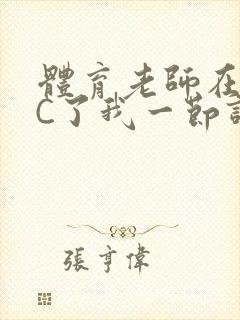 體育老師在
C了我一節
張亨偉